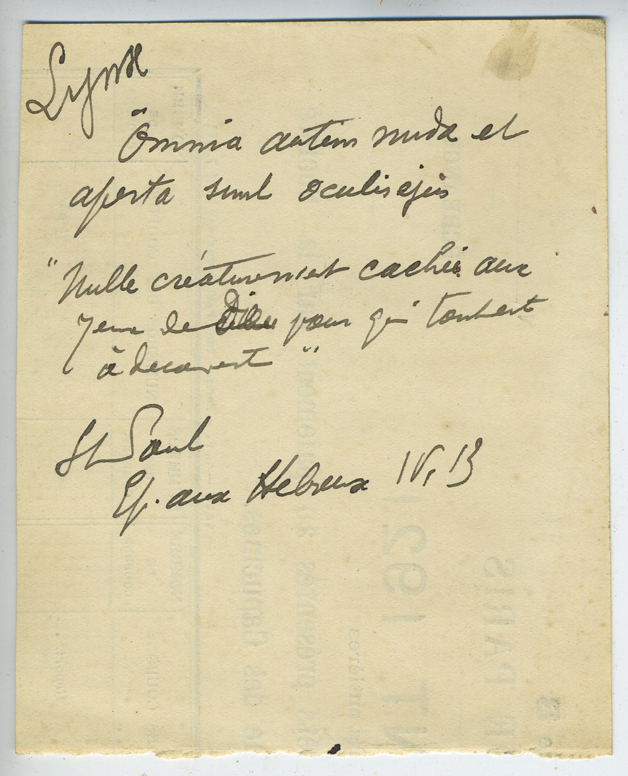 Lynx
"Omnia autem nuda et
aperta sunt oculis ejus
"Nulle créature n'est cachée aux
yeux de Dieu pour qui tout est
à découvert "
St Paul
Ep. aux Hebreux IV, 13